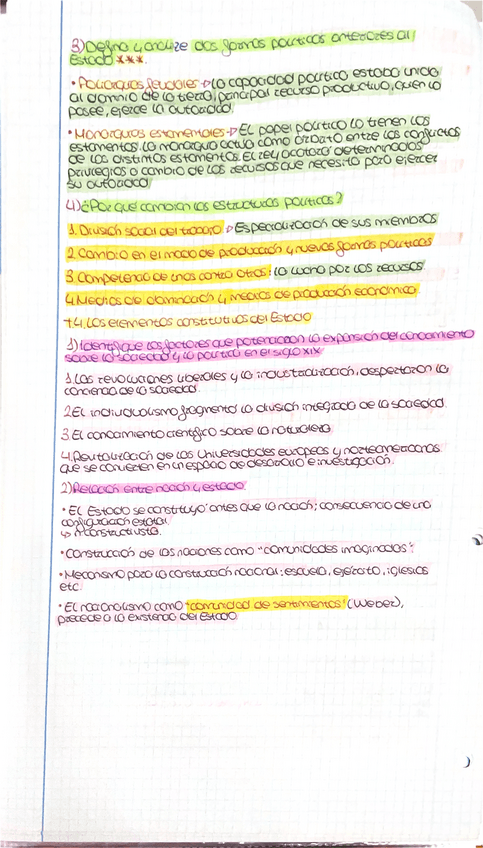 3) Defina y analize dos formas políticas anteriores al
Estado ***.
• Poliarquías feudales → La capacidad política estaba unida
al dominio de la tierra, principal recurso productivo, quien la
posee, ejerce la autoridad.
• Monarquías estamentales → El papel político lo tienen los
estamentos. La monarquía actúa como árbitro entre los conflictos
de los distintos estamentos. El rey otorgará determinados
privilegios a cambio de los recursos que necesita para ejercer
su autoridad.
4) ¿Por qué cambian las estructuras políticas?
1. División social del trabajo → Especialización de sus miembros
2. Cambio en el modo de producción y nuevas formas políticas
3. Competencia de unos contra otros: la lucha por los recursos
4. Medios de dominación y medios de producción económica
T.4. Los elementos constitutivos del Estado
1) Identifique los factores que potenciaron la expansión del conocimiento
sobre la sociedad y la política en el siglo XIX
1. Las revoluciones liberales y la industrialización, despertaron la
conciencia de la sociedad.
2. El individualismo fragmentó la ilusión integrada de la sociedad.
3. El conocimiento científico sobre la naturaleza
4. Revitalización de las Universidades europeas y norteamericanas
que se convierten en un espacio de desarrollo e investigación.
2) Relación entre nación y estado
• El Estado se constituyó antes que la nación; consecuencia de una
configuración estatal
↳ Constructivista.
• Construcción de las naciones como "comunidades imaginadas".
• Mecanismo para la construcción nacional: escuela, ejército, iglesias
etc.
• El nacionalismo como "comunidad de sentimientos" (Weber),
precede a la existencia del Estado.